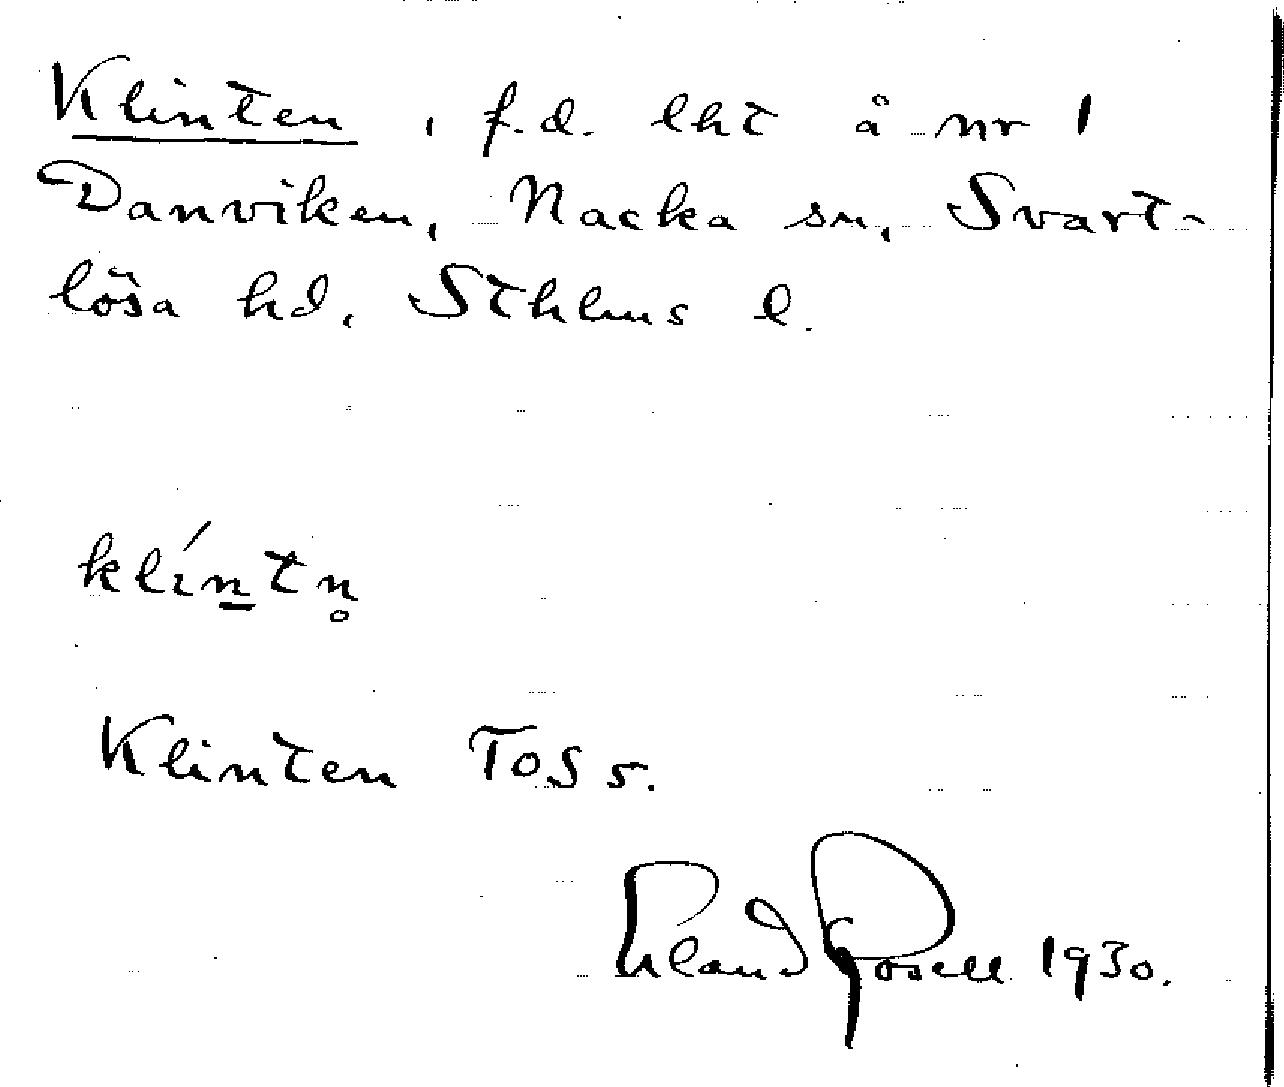 Klinten, f.d. lht å nr 1
Danviken, Nacka sn, Svart-
lösa hd, Sthlms l.
klíntn̥
Klinten TOS 5.
Erland Rosell 1930.